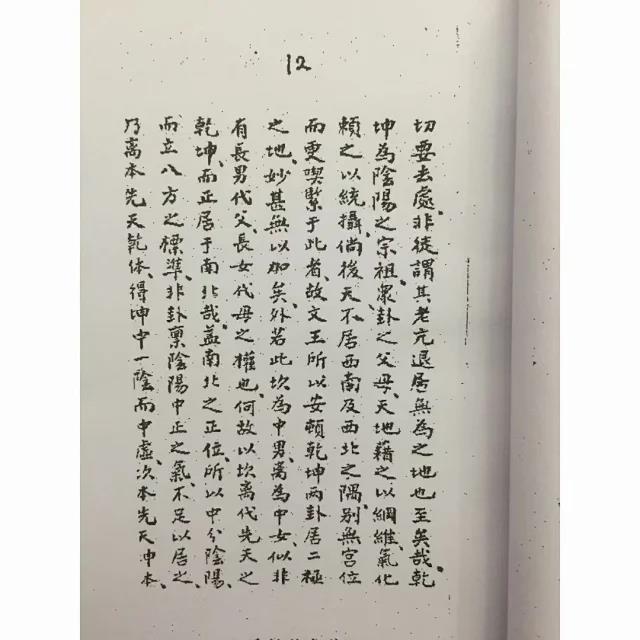 12
切要去處、非徒謂其老亢退居無為之地也、至矣哉、乾
坤為陰陽之宗祖、眾卦之父母、天地藉之以綱維、氣化
賴之以統攝、倘後天不居西南及西北之隅、別無宮位
而更喫緊于此者、故文王所以安頓乾坤兩卦居二極
之地、妙甚無以加矣、外若此坎為中男、离為中女、似非
有長男代父、長女代母之權也、何故以坎离代先天之
乾坤、而正居于南北哉、蓋南北之正位、所以中分陰陽、
而立八方之標準、非卦稟陰陽中正之氣、不足以居之、
乃离本先天乾体、得坤中一陰而中虛、次本先天冲本、